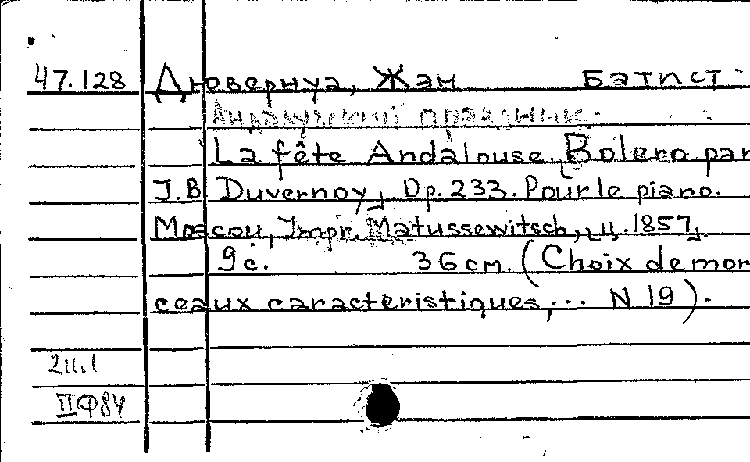 47.128 Дювернуа, Жан Батист-
Андалузский праздник.
La fête Andalouse, Bolero par
J.B. Duvernoy, Op. 233. Pour le piano.
Moscou, Impr. Matussewitsch, ц. 1857,
9 с. 36 см. (Choix de mor
ceaux caractéristiques, ... N 19).
II Ф84